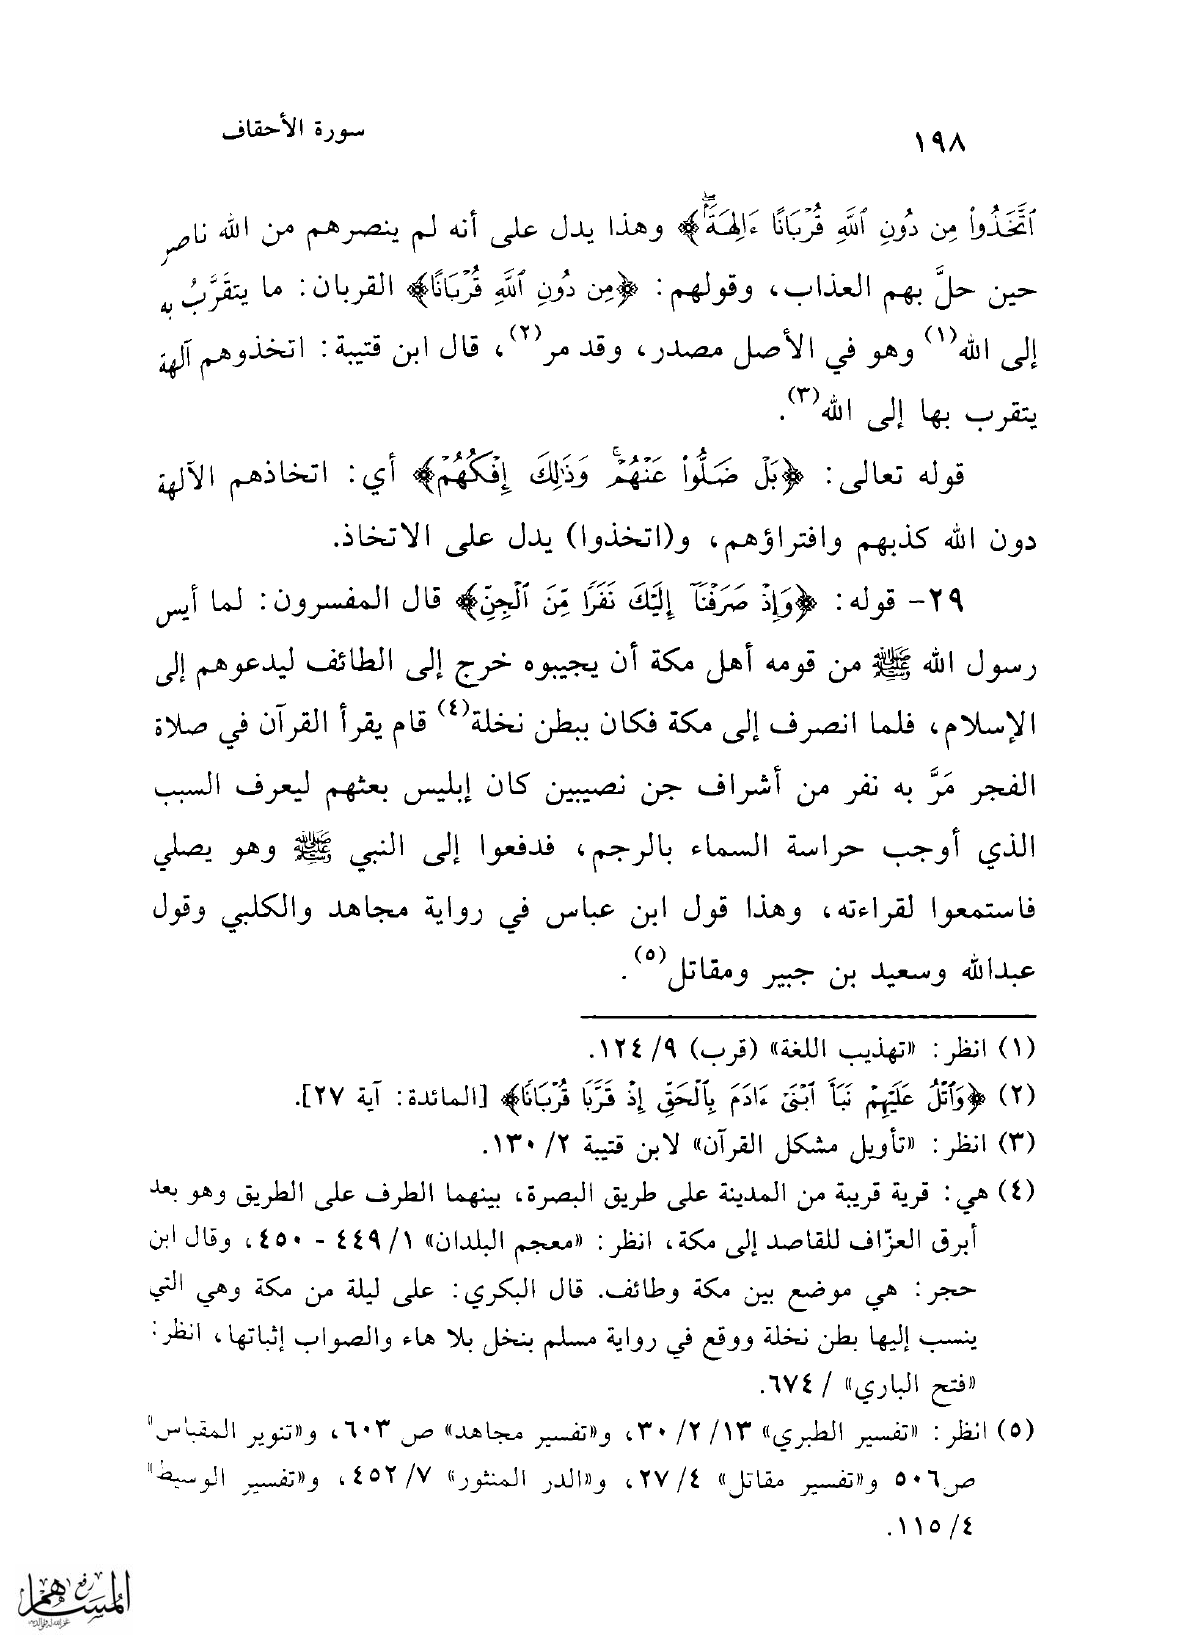 ١٩٨ سورة الأحقاف
ٱتَّخَذُواْ مِن دُونِ ٱللَّهِ قُرْبَانًا ءَالِهَةًۢ﴾ وهذا يدل على أنه لم ينصرهم من الله ناصر
حين حلَّ بهم العذاب، وقولهم: ﴿مِن دُونِ ٱللَّهِ قُرْبَانًا﴾ القربان: ما يتقَرَّبُ به
إلى الله(١) وهو في الأصل مصدر، وقد مر(٢)، قال ابن قتيبة: اتخذوهم آلهة
يتقرب بها إلى الله(٣).
قوله تعالى: ﴿بَلْ ضَلُّواْ عَنْهُمْۚ وَذَٰلِكَ إِفْكُهُمْ﴾ أي: اتخاذهم الآلهة
دون الله كذبهم وافتراؤهم، و(اتخذوا) يدل على الاتخاذ.
٢٩- قوله: ﴿وَإِذْ صَرَفْنَآ إِلَيْكَ نَفَرًا مِّنَ ٱلْجِنِّ﴾ قال المفسرون: لما أيس
رسول الله ﷺ من قومه أهل مكة أن يجيبوه خرج إلى الطائف ليدعوهم إلى
الإسلام، فلما انصرف إلى مكة فكان ببطن نخلة(٤) قام يقرأ القرآن في صلاة
الفجر مَرَّ به نفر من أشراف جن نصيبين كان إبليس بعثهم ليعرف السبب
الذي أوجب حراسة السماء بالرجم، فدفعوا إلى النبي ﷺ وهو يصلي
فاستمعوا لقراءته، وهذا قول ابن عباس في رواية مجاهد والكلبي وقول
عبدالله وسعيد بن جبير ومقاتل(٥).
(١) انظر: «تهذيب اللغة» (قرب) ٩/ ١٢٤.
(٢) ﴿وَٱتْلُ عَلَيْهِمْ نَبَأَ ٱبْنَىْ ءَادَمَ بِٱلْحَقِّ إِذْ قَرَّبَا قُرْبَانًا﴾ [المائدة: آية ٢٧].
(٣) انظر: «تأويل مشكل القرآن» لابن قتيبة ٢/ ١٣٠.
(٤) هي: قرية قريبة من المدينة على طريق البصرة، بينهما الطرف على الطريق وهو بعد
أبرق العزّاف للقاصد إلى مكة، انظر: «معجم البلدان» ١/ ٤٤٩ - ٤٥٠، وقال ابن
حجر: هي موضع بين مكة وطائف. قال البكري: على ليلة من مكة وهي التي
ينسب إليها بطن نخلة ووقع في رواية مسلم بنخل بلا هاء والصواب إثباتها، انظر:
«فتح الباري» / ٦٧٤.
(٥) انظر: «تفسير الطبري» ١٣/ ٢/ ٣٠، و«تفسير مجاهد» ص ٦٠٣، و«تنوير المقباس»
ص٥٠٦ و«تفسير مقاتل» ٤/ ٢٧، و«الدر المنثور» ٧/ ٤٥٢، و«تفسير الوسيط»
٤/ ١١٥.
رفع
المساهم